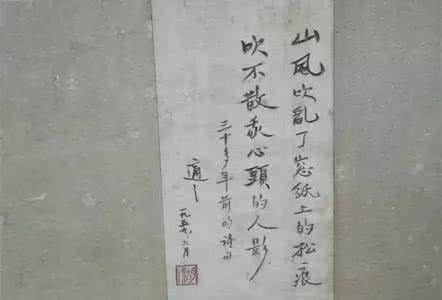 山風吹亂了窓紙上的松痕
吹不散我心頭的人影
三十多年前的詩句
適之
一九五九、二月